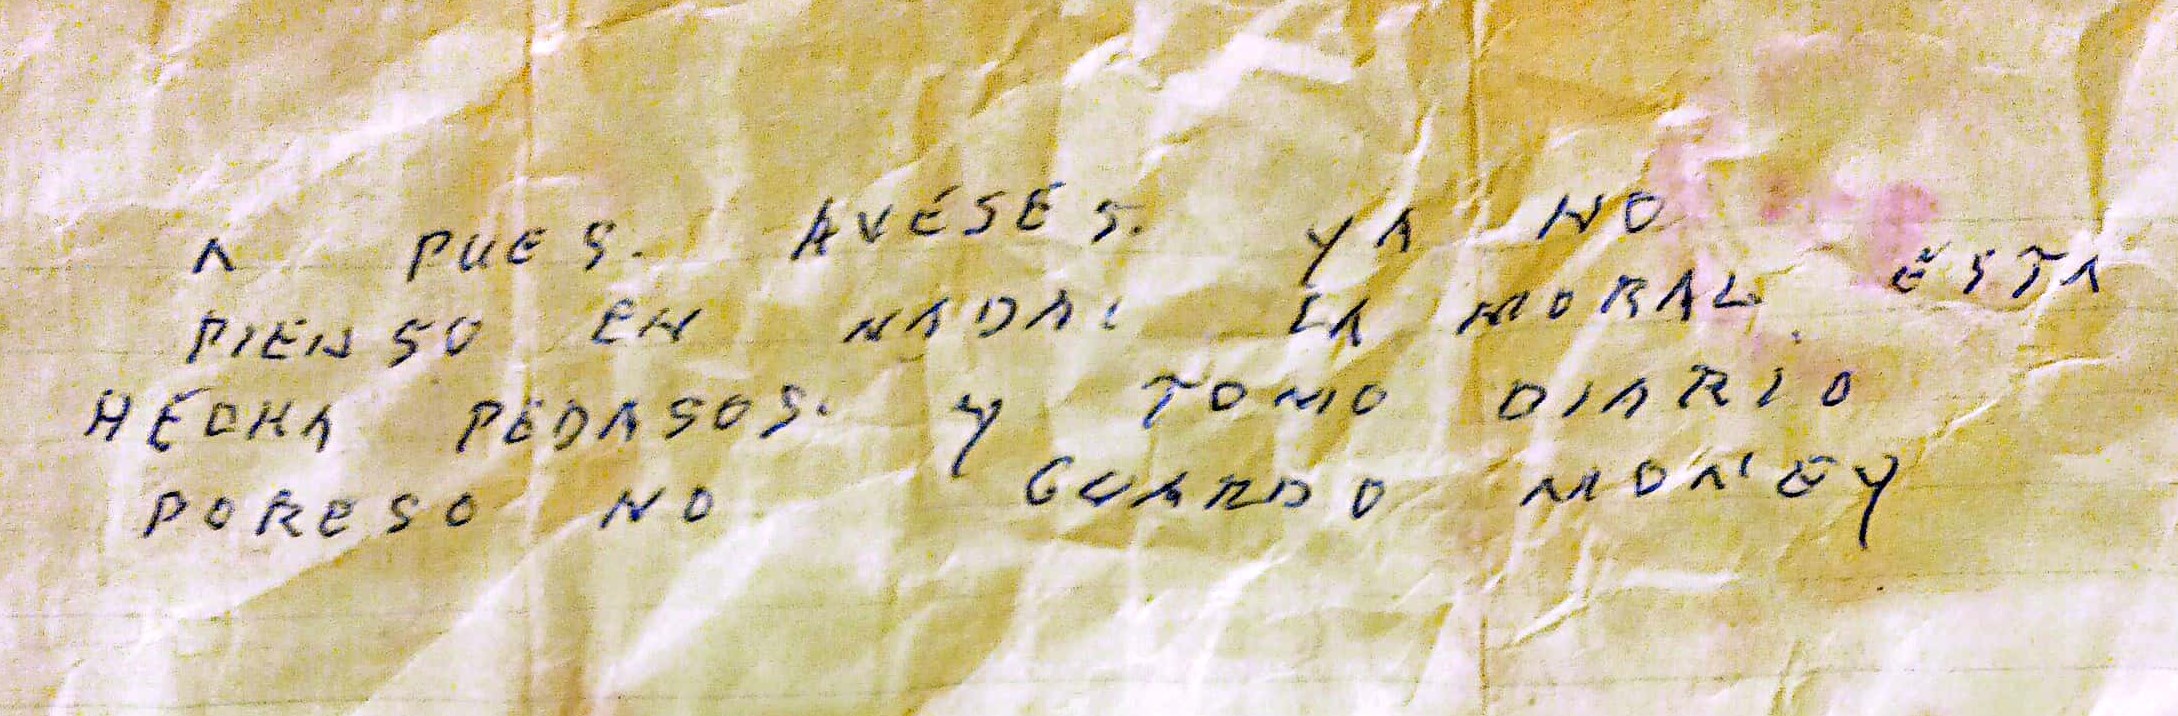 A PUES. AVÉSES. YA NO
PIENSO EN NADA: LA MORAL. ÉSTA
HECHA PEDASOS. Y TOMO DIARIO
PORESO NO GUARDO MONEY